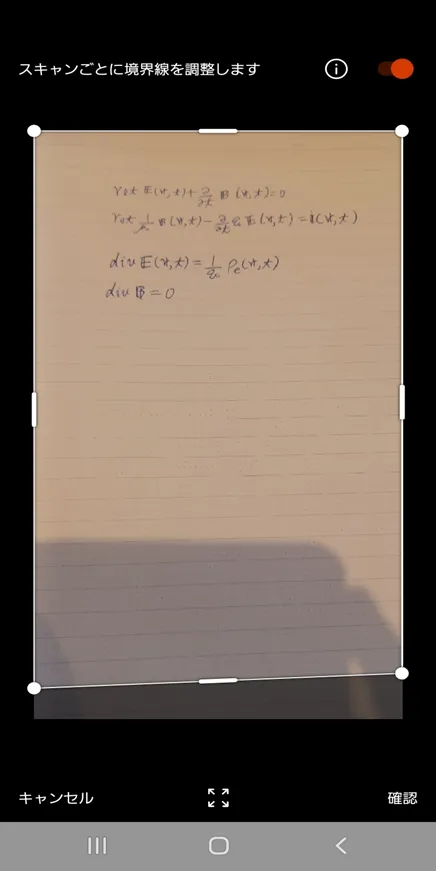 スキャンごとに境界線を調整します
rot 𝔼(𝕣,t)+∂/∂t 𝔹(𝕣,t)=0
rot 1/μ₀ 𝔹(𝕣,t)−∂/∂t ε₀𝔼(𝕣,t)=𝕚(𝕣,t)
div 𝔼(𝕣,t)=1/ε₀ ρe(𝕣,t)
div 𝔹=0
キャンセル
確認